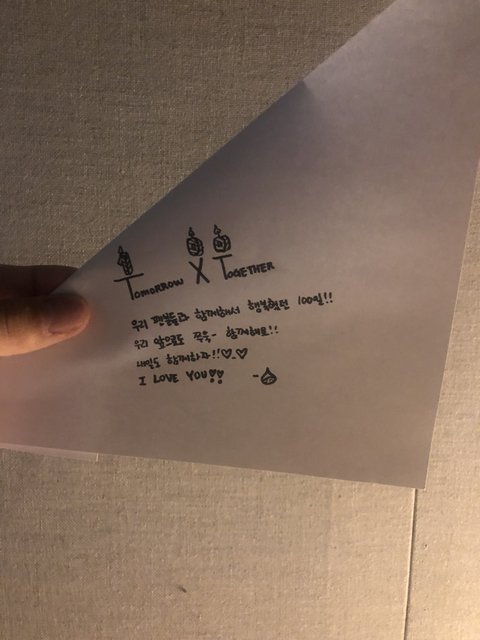 TOMORROW X TOGETHER
우리 팬분들과 함께해서 행복했던 100일!!
우리 앞으로도 쭈욱- 함께해요!!
내일도 함께하자!!♡-♡
I LOVE YOU!!